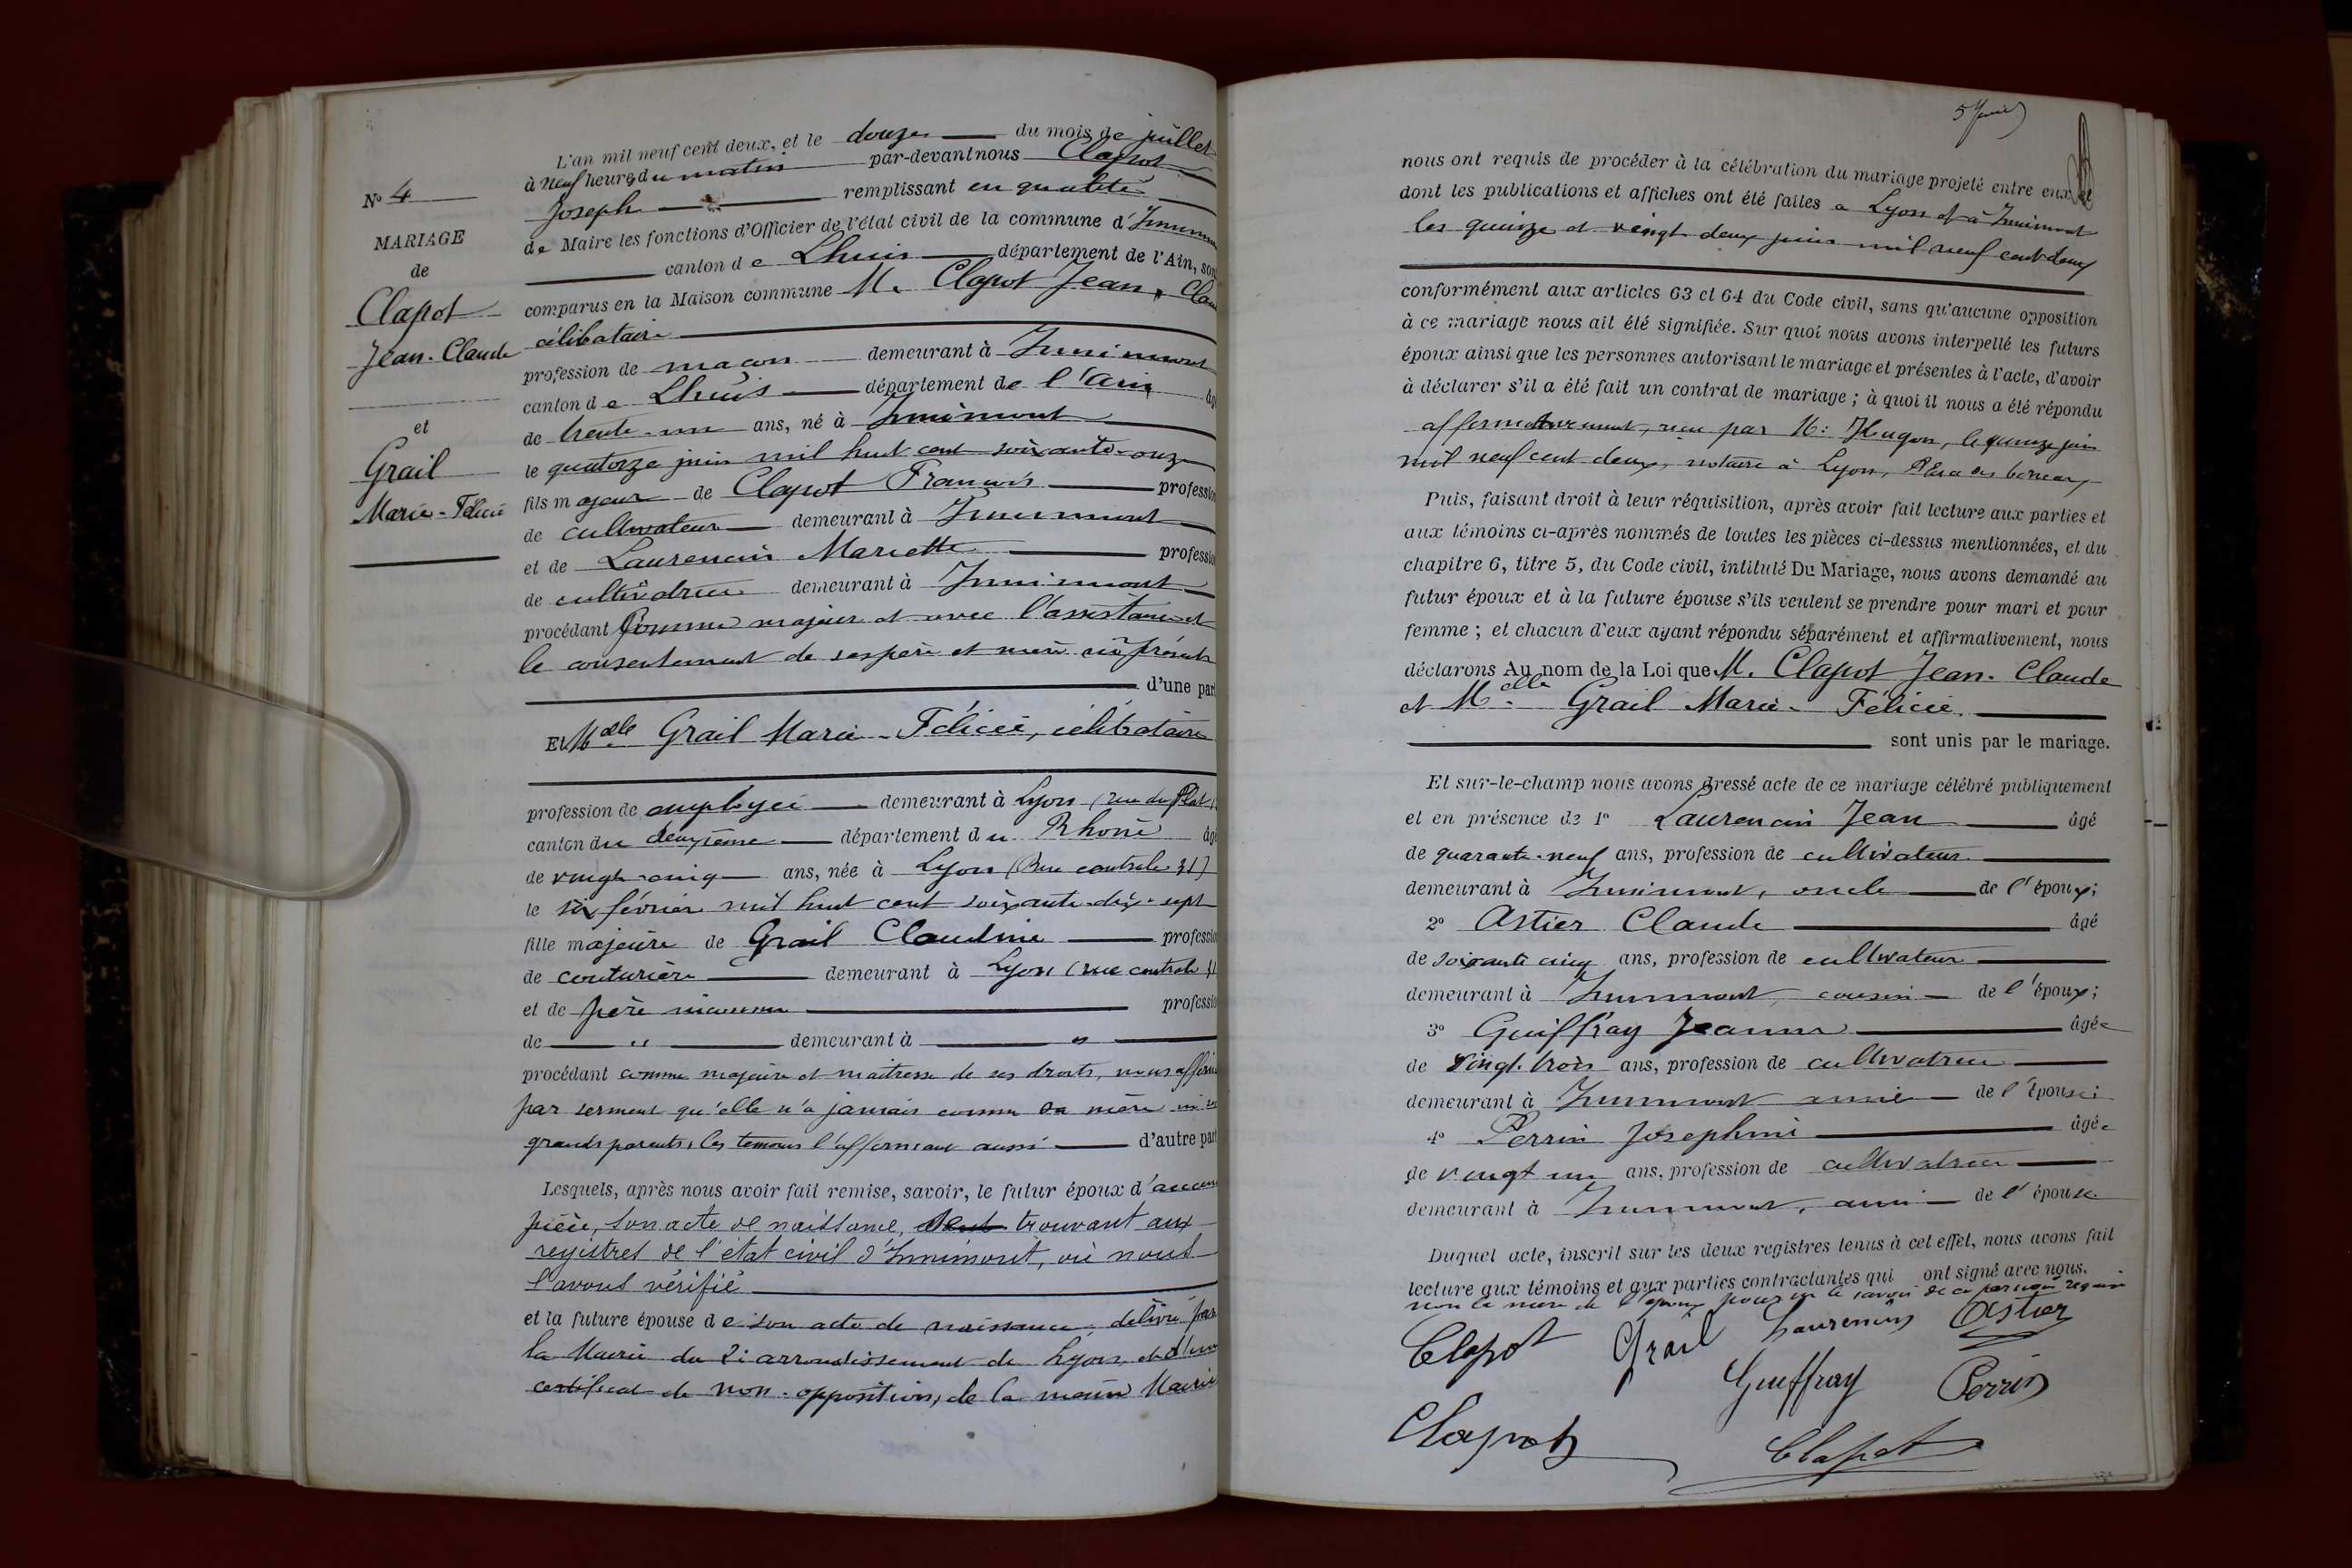 L'an mil neuf cent deux, et le douze du mois de juillet
à neuf heures du matin par-devant nous Clapot
Joseph remplissant en qualité
de Maire les fonctions d'Officier de l'état civil de la commune d'Innimont
canton de Lhuis département de l'Ain, sont
comparus en la Maison commune M. Clapot Jean, Claude
célibataire
profession de maçon demeurant à Innimont
canton de Lhuis département de l'Ain âgé
de trente-un ans, né à Innimont
le quatorze juin mil huit cent soixante-onze
fils majeur de Clapot François profession
de cultivateur demeurant à Innimont
et de Laurencin Mariette profession
de cultivatrice demeurant à Innimont
procédant comme majeur et avec l'assistance et
le consentement de ses père et mère ici présents
d'une part
Et Melle Grail Marie-Félicie, célibataire
profession de employée demeurant à Lyon (rue du Plat
canton du deuxième département du Rhône âgé
de vingt-cinq ans, née à Lyon (Rue centrale 31)
le six février mil huit cent soixante-dix-sept
fille majeure de Grail Claudine profession
de couturière demeurant à Lyon (rue centrale 31
et de père inconnu profession
de " demeurant à "
procédant comme majeure et maîtresse de ses droits, nous affirme
par serment qu'elle n'a jamais connu sa mère ni ses
grands parents, les temoins l'affirmant aussi d'autre part
Lesquels, après nous avoir fait remise, savoir, le futur époux d'aucune
pièce, son acte de naissance, trouvant aux
registres de l'état civil d'Innimont, où nous
l'avons vérifié
et la future épouse de son acte de naissance, délivré par
la Mairie du 2e arrondissement de Lyon, et d'un
certificat de non-opposition, de la même Mairie
N° 4
MARIAGE
de
Clapot
Jean-Claude
et
Grail
Marie-Félicie
nous ont requis de procéder à la célébration du mariage projeté entre eux et
dont les publications et affiches ont été faites à Lyon et à Innimont
les quinze et vingt deux juin mil neuf cent deux
conformément aux articles 63 et 64 du Code civil, sans qu'aucune opposition
à ce mariage nous ait été signifiée. Sur quoi nous avons interpellé les futurs
époux ainsi que les personnes autorisant le mariage et présentes à l'acte, d'avoir
à déclarer s'il a été fait un contrat de mariage ; à quoi il nous a été répondu
affirmativement, reçu par M: Hugon, le quinze juin
mil neuf cent deux, notaire à Lyon,
Puis, faisant droit à leur réquisition, après avoir fait lecture aux parties et
aux témoins ci-après nommés de toutes les pièces ci-dessus mentionnées, et du
chapitre 6, titre 5, du Code civil, intitulé Du Mariage, nous avons demandé au
futur époux et à la future épouse s'ils veulent se prendre pour mari et pour
femme ; et chacun d'eux ayant répondu séparément et affirmativement, nous
déclarons Au nom de la Loi que M. Clapot Jean-Claude
et Melle Grail Marie-Félicie.
sont unis par le mariage.
Et sur-le-champ nous avons dressé acte de ce mariage célébré publiquement
et en présence de 1° Laurencin Jean âgé
de quarante-neuf ans, profession de cultivateur
demeurant à Innimont, oncle de l'époux;
2° Astier Claude âgé
de soixante cinq ans, profession de cultivateur
demeurant à Innimont, cousin de l'époux;
3° Guiffray Jeanne âgée
de vingt-trois ans, profession de cultivatrice
demeurant à Innimont amie de l'épouse;
4° Perrin Josephine âgée
de vingt un ans, profession de cultivatrice
demeurant à Innimont, amie de l'épouse
Duquel acte, inscrit sur les deux registres tenus à cet effet, nous avons fait
lecture aux témoins et aux parties contractantes qui ont signé avec nous.
non la mère de l'époux pour ne le savoir de ce par nous requise
Clapot Grail Laurencin Astier
Guiffray Perrin
Clapot Clapot